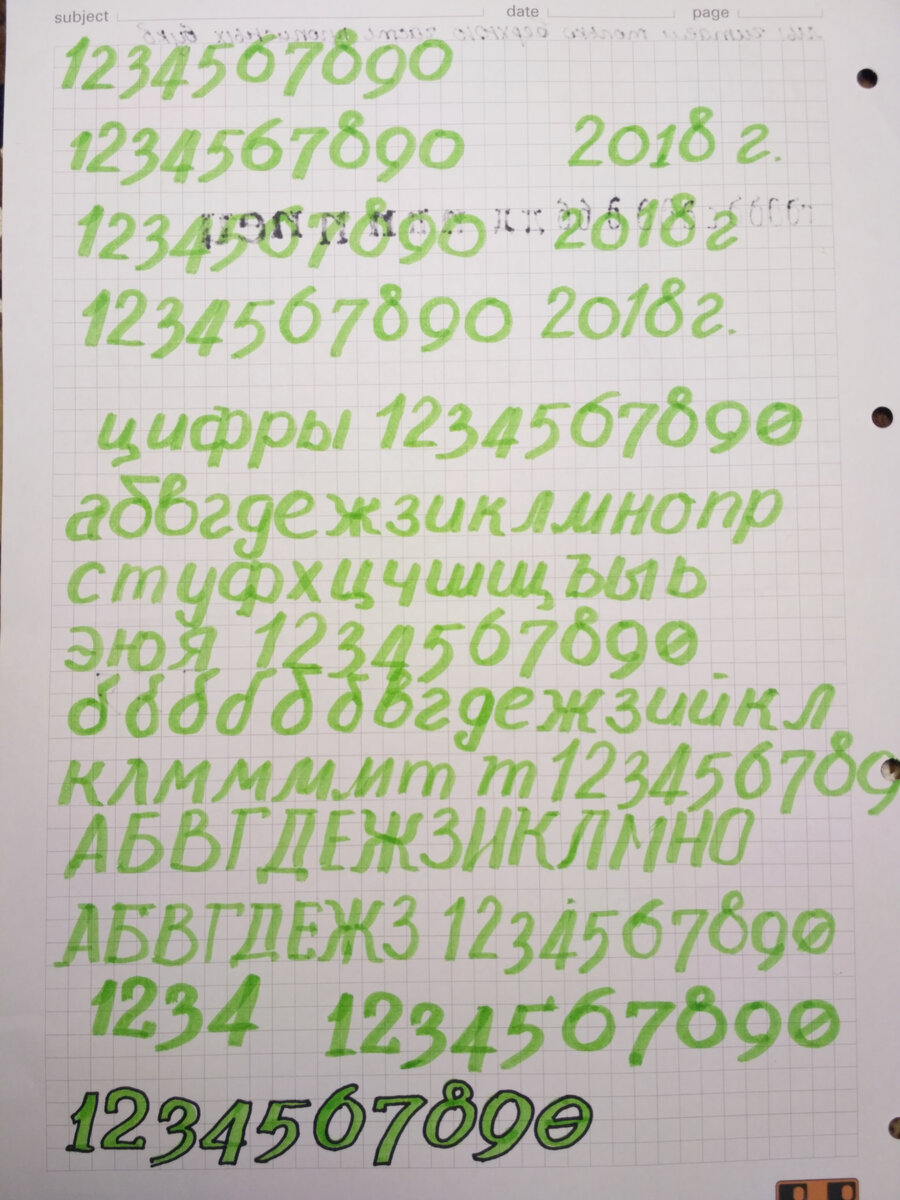 subject date page
1234567890
1234567890 2018 г.
1234567890 2018 г
1234567890 2018 г.
цифры 1234567890
абвгдежзиклмнопр
стуфхцчшщъыь
эюя 1234567890
ббббббвгдежзийкл
клмммммт т 123456789
АБВГДЕЖЗИКЛМНО
АБВГДЕЖЗ 1234567890
1234 1234567890
1234567890